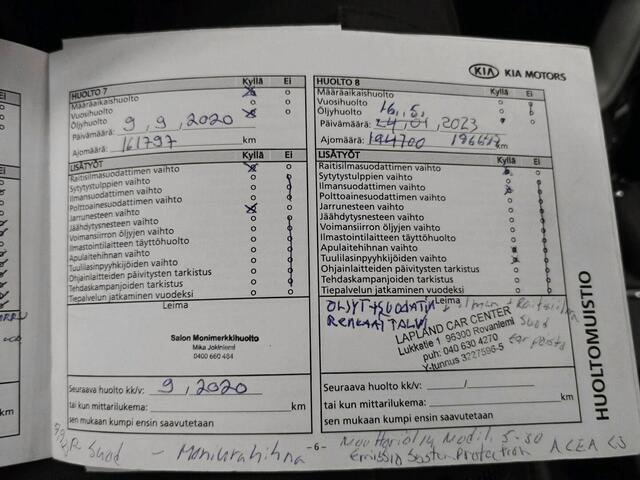 KIA KIA MOTORS
HUOLTO 7 Kyllä Ei
Määräaikaishuolto
Vuosihuolto
Öljyhuolto
Päivämäärä: 9, 9, 2020
Ajomäärä: 161797 km
LISÄTYÖT Kyllä Ei
Raitisilmasuodattimen vaihto
Sytytystulppien vaihto
Ilmansuodattimen vaihto
Polttoainesuodattimen vaihto
Jarrunesteen vaihto
Jäähdytysnesteen vaihto
Voimansiirron öljyjen vaihto
Ilmastointilaitteen täyttöhuolto
Apulaitehihnan vaihto
Tuulilasinpyyhkijöiden vaihto
Ohjainlaitteiden päivitysten tarkistus
Tehdaskampanjoiden tarkistus
Tiepalvelun jatkaminen vuodeksi
Leima
Salon Monimerkkihuolto
Mika Jokiniemi
0400 660 484
Seuraava huolto kk/v: 9, 2020
tai kun mittarilukema: km
sen mukaan kumpi ensin saavutetaan
HUOLTO 8 Kyllä Ei
Määräaikaishuolto
Vuosihuolto
Öljyhuolto 16. 5.
Päivämäärä: 24, 01, 2023
Ajomäärä: 194700 km
LISÄTYÖT Kyllä Ei
Raitisilmasuodattimen vaihto
Sytytystulppien vaihto
Ilmansuodattimen vaihto
Polttoainesuodattimen vaihto
Jarrunesteen vaihto
Jäähdytysnesteen vaihto
Voimansiirron öljyjen vaihto
Ilmastointilaitteen täyttöhuolto
Apulaitehihnan vaihto
Tuulilasinpyyhkijöiden vaihto
Ohjainlaitteiden päivitysten tarkistus
Tehdaskampanjoiden tarkistus
Tiepalvelun jatkaminen vuodeksi
Leima
ÖLJYT+SUODATIN
RENKAAT TALVI
LAPLAND CAR CENTER
Lukkatie 1 95300 Rovaniemi
puh: 040 630 4270
Y-tunnus 3227596-5
Suod
Seuraava huolto kk/v: /
tai kun mittarilukema: km
sen mukaan kumpi ensin saavutetaan
HUOLTOMUISTIO
Suod - Moniurahihna
-6-
5-30 ACEA C3
Protection